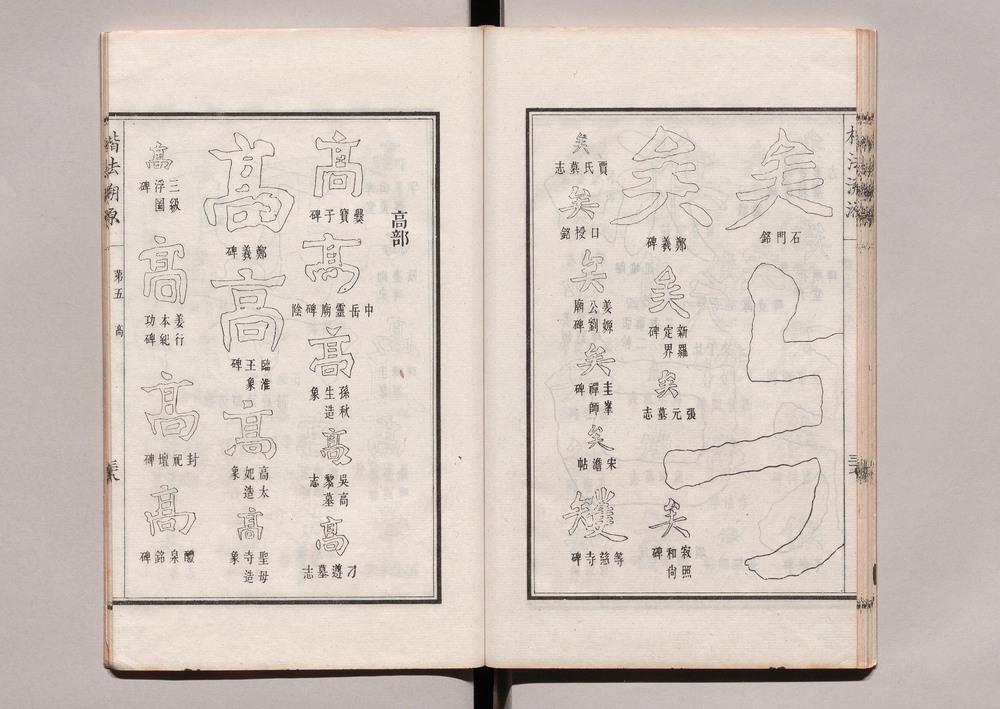 矣
石門銘
矣
鄭義碑
矣
新羅定界碑
矣
張元墓志
矣
寂照和尙碑
矣
賈氏墓志
矣
口授銘
矣
姜嫄公劉廟碑
矣
圭峯禪師碑
矣
宋儋帖
等慈寺碑
高部
髙
爨寶子碑
髙
中岳靈廟碑陰
髙
孫秋生造象
髙
吳高黎墓志
髙
刁遵墓志
髙
鄭義碑
髙
臨淮王象
髙
高太妃造象
髙
聖母寺造象
髙
三級浮圖碑
髙
姜行本紀功碑
髙
封祀壇碑
髙
醴泉銘碑
楷法溯原
第五
高